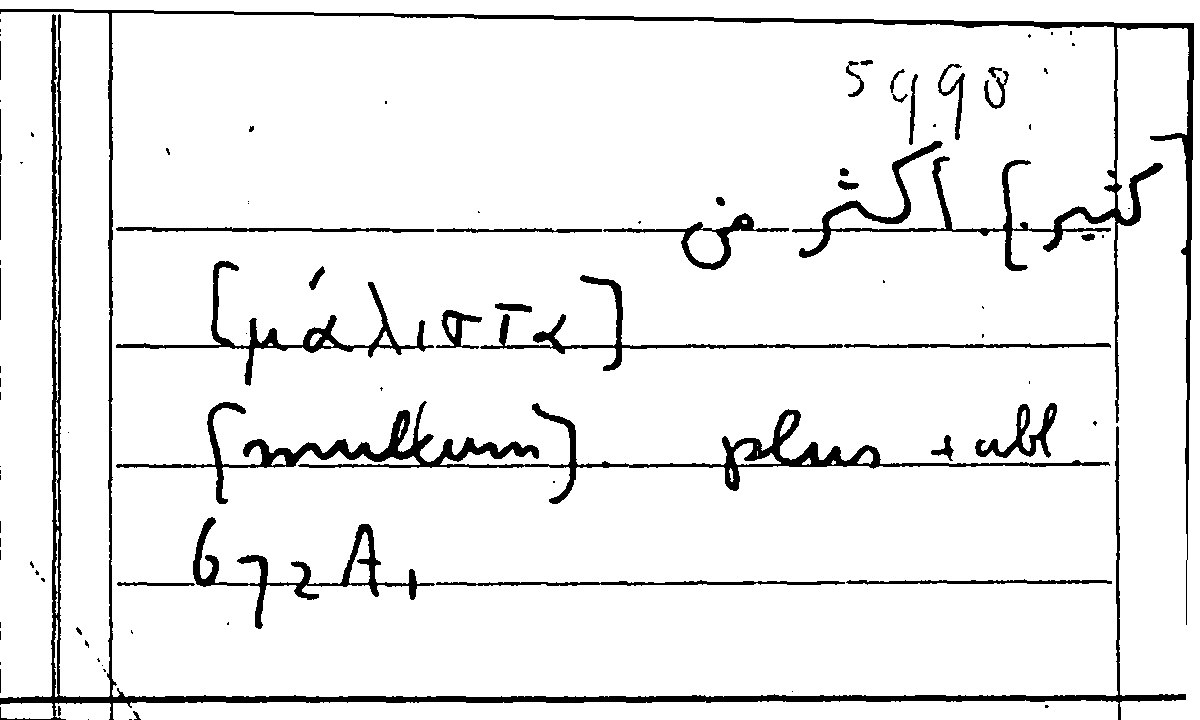 5998
[كثير]. اكثر من
[μάλιστα]
[multum]. plus + abl.
672A,